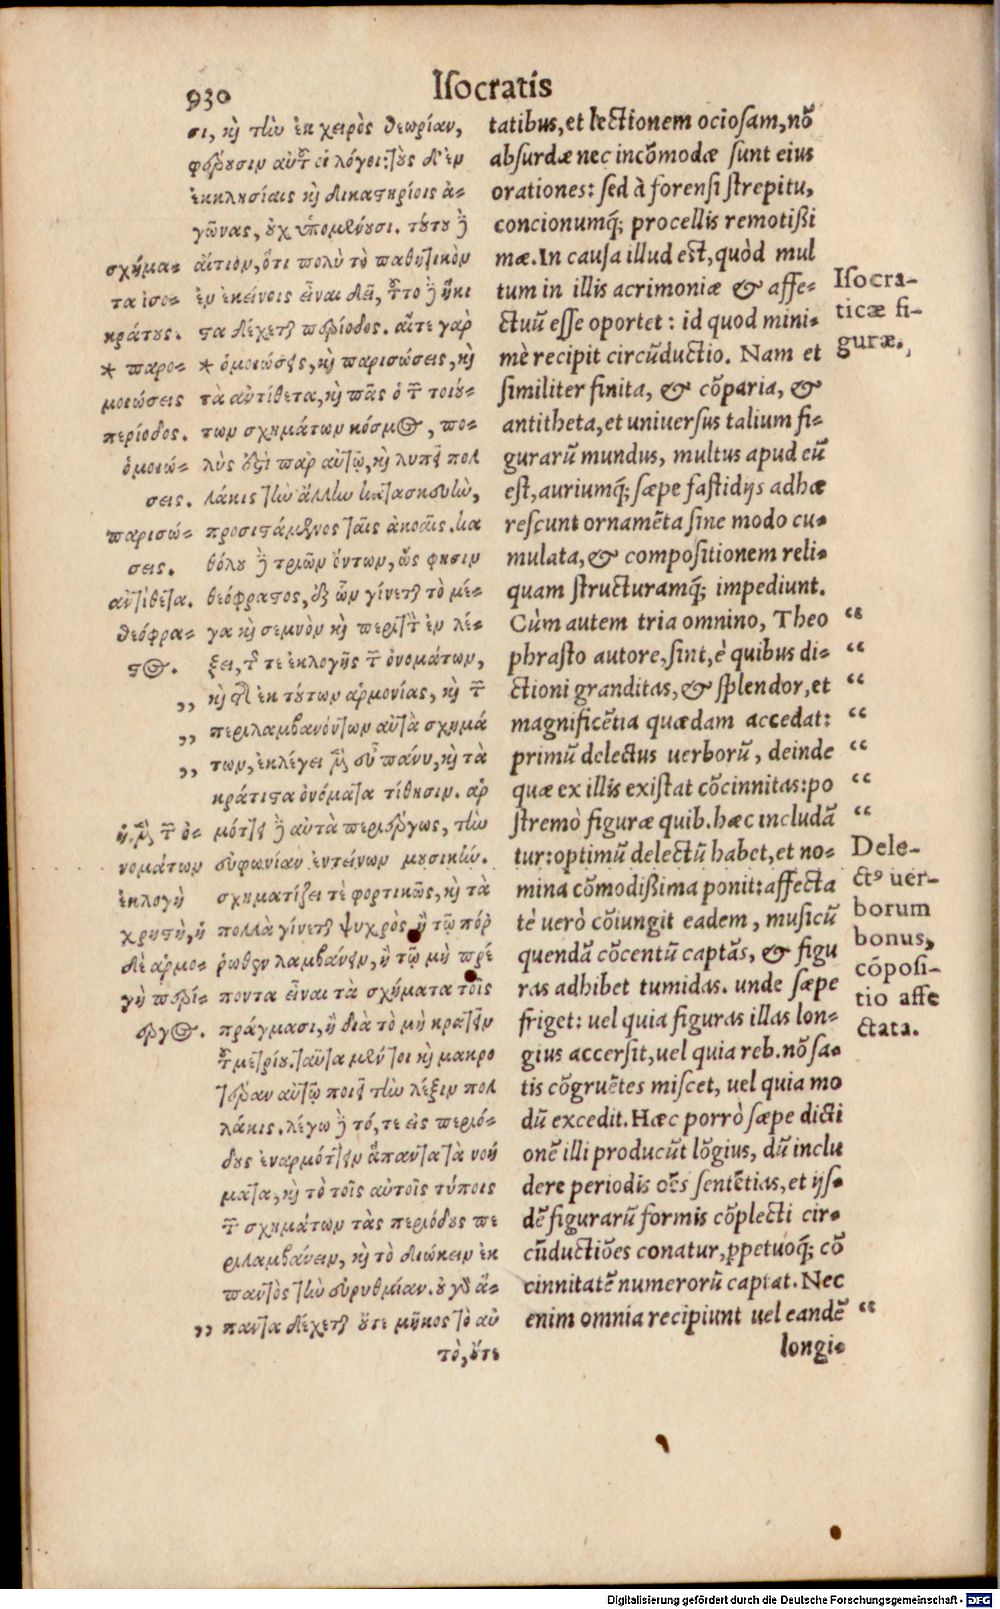 930
Isocratis
σι, καὶ τὴν ἐκ χειρὸς θεωρίαν,
φέρουσιν αὐτοῦ οἱ λόγοι: τοὺς δ' ἐν
ἐκκλησίαις καὶ δικαστηρίοις ἀ-
γῶνας, οὐχ ὑπομένουσι. τούτου δὲ
αἴτιον, ὅτι πολὺ τὸ παθητικὸν
ἐν ἐκείνοις εἶναι δεῖ, τοῦτο δὲ ἥκι
στα δέχεται περίοδος. αἵτε γὰρ
* ὁμοιώσεις, καὶ παρισώσεις, καὶ
τὰ ἀντίθετα, καὶ πᾶς ὁ τῶν τοιού-
των σχημάτων κόσμος, πο-
λὺς ἐστὶ παρ αὐτῷ, καὶ λυπεῖ πολ
λάκις τὴν ἄλλην κατασκευὴν,
προσιστάμενος ταῖς ἀκοαῖς. κα
θόλου δὲ τριῶν ὄντων, ὥς φησιν
θεόφραστος, ἐξ ὧν γίνεται τὸ μέ-
γα καὶ σεμνὸν καὶ περιττὸν ἐν λέ-
ξει, τῆς τε ἐκλογῆς τῶν ὀνομάτων,
καὶ τῆς ἐκ τούτων ἁρμονίας, καὶ τῶν
περιλαμβανόντων αὐτὰ σχημά
των, ἐκλέγει μὲν εὖ πάνυ, καὶ τὰ
κράτιστα ὀνόματα τίθησιν. ἁρ
μόττει δὲ αὐτὰ περιέργως, τὴν
εὐφωνίαν ἐντείνων μουσικήν.
σχηματίζει τὲ φορτικῶς, καὶ τὰ
πολλὰ γίνεται ψυχρὸς ἢ τῷ πόρ
ῥωθεν λαμβάνειν, ἢ τῷ μὴ πρέ
ποντα εἶναι τὰ σχήματα τοῖς
πράγμασι, ἢ διὰ τὸ μὴ κρατεῖν
τοῦ μετρίου. ταῦτα μέντοι καὶ μακρο
τέραν αὐτῷ ποιεῖ τὴν λέξιν πολ
λάκις. λέγω δὲ τό, τε εἰς περιό-
δους ἐναρμόττειν ἅπαντα τὰ νοή
ματα, καὶ τὸ τοῖς αὐτοῖς τύποις
τῶν σχημάτων τὰς περιόδους πε
ριλαμβάνειν, καὶ τὸ διώκειν ἐκ
παντὸς τὴν εὐρυθμίαν. οὐ γὰρ ἅ-
,, παντα δέχεται οὔτε μῆκος τὸ αὐ
τὸ, οὔτε
σχήμα-
τα ἰσο-
κράτους.
* παρο-
μοιώσεις
περίοδος.
ὁμοιώ-
σεις.
παρισώ-
σεις.
ἀντίθετα.
θεόφρα-
στος.
,,
,,
,,
ἡ μὲν τῶν ὀ-
νομάτων
ἐκλογὴ
χρηστὴ, ἡ
δὲ ἁρμο-
γὴ περί-
εργος.
tatibus, et lectionem ociosam, nõ
absurdæ nec incõmodæ sunt eius
orationes: sed à forensi strepitu,
concionumq́; procellis remotißi
mæ. In causa illud est, quòd mul
tum in illis acrimoniæ & affe-
ctuũ esse oportet: id quod mini-
mè recipit circũductio. Nam et
similiter finita, & cõparia, &
antitheta, et uniuersus talium fi-
gurarũ mundus, multus apud eũ
est, auriumq́; sæpe fastidijs adhæ
rescunt ornamẽta sine modo cu-
mulata, & compositionem reli-
quam structuramq́; impediunt.
Cùm autem tria omnino, Theo “
phrasto autore, sint, è quibus di- “
ctioni granditas, & splendor, et “
magnificẽtia quædam accedat: “
primũ delectus uerborũ, deinde “
quæ ex illis existat cõcinnitas: po “
stremò figuræ quib. hæc includã “
tur: optimũ delectũ habet, et no-
mina cõmodißima ponit: affecta
tè uerò cõiungit eadem, musicũ
quendã cõcentũ captãs, & figu
ras adhibet tumidas. unde sæpe
friget: uel quia figuras illas lon-
gius accersit, uel quia reb. nõ sa-
tis cõgruẽtes miscet, uel quia mo
dũ excedit. Hæc porrò sæpe dicti
onẽ illi producũt lõgius, dũ inclu
dere periodis oẽs sentẽtias, et ijs-
dẽ figurarũ formis cõplecti cir-
cũductiões conatur, ꝑpetuoq́; cõ
cinnitatẽ numerorũ captat. Nec
enim omnia recipiunt uel eandẽ “
longi-
Isocra-
ticæ fi-
guræ.
Dele-
ctꝰ uer-
borum
bonus,
cõposi-
tio affe
ctata.
Digitalisierung gefördert durch die Deutsche Forschungsgemeinschaft - DFG